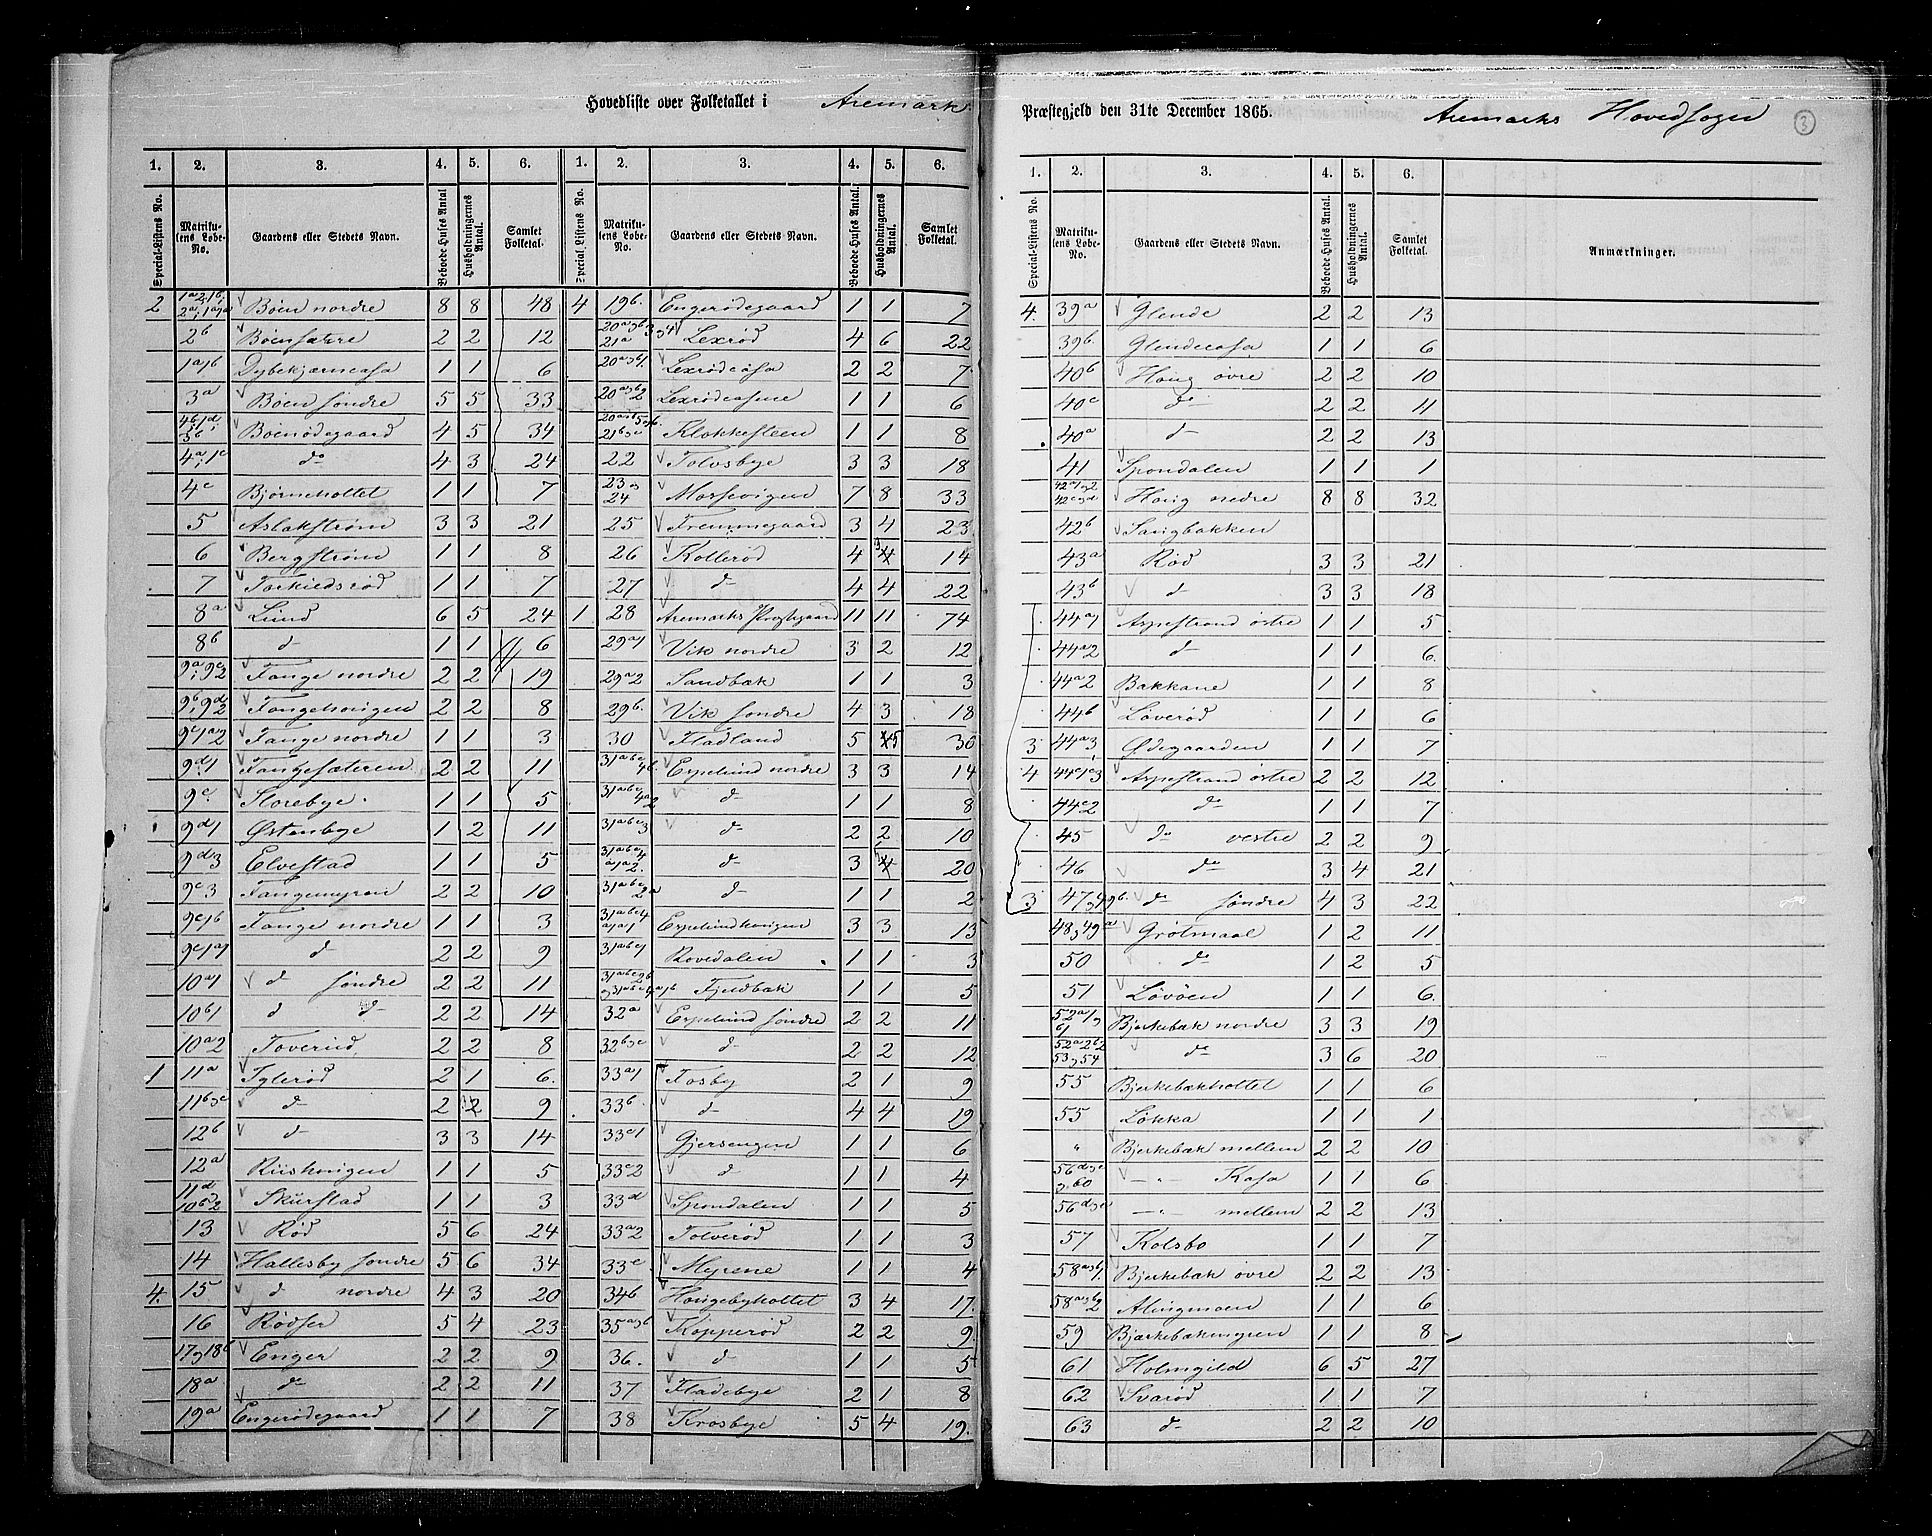 Hovedliste over Folketallet i Aremarks Præstegjeld den 31te December 1865. Aremarks Hovedsogn 3
1. 2. 3. 4. 5. 6. 1. 2. 3. 4. 5. 6.
Special-Listens No. Matrikulens Løbe-No. Gaardens eller Stedets Navn. Beboede Huses Antal. Husholdningernes Antal. Samlet Folketal. Special-Listens No. Matrikulens Løbe-No. Gaardens eller Stedets Navn. Beboede Huses Antal. Husholdningernes Antal. Samlet Folketal.
2 Bøen nordre 8 8 48
2b Bøensætre 2 2 12
1a2b Dybekjærncasa 1 1 6
3a Bøen søndre 5 5 33
Bøenødegaard 4 5 34
4a,1c do 4 3 24
4c Bjørneholtet 1 1 7
5 Aslakstrøm 3 3 21
6 Bergstrøm 1 1 8
7 Torkildsrød 1 1 7
8a Lund 6 5 24
8b d 1 1 6
9a,9c2 Tange nordre 2 2 19
9b,9d2 Tangehøvigen 2 2 8
9c1a2 Tange nordre 1 1 3
9d1 Tangesæteren 2 2 11
9c Storebye 1 1 5
9d1 Østenbye 1 2 11
9d3 Elvestad 1 1 5
9c3 Tangemyren 2 2 10
9c1b Tange nordre 1 1 3
9c1a1 d 2 2 9
10a1 d søndre 2 2 11
10b1 d d 2 2 14
10a2 Toverud 2 2 8
1 11a Tylerød 2 1 6
11b&c d 2 2 9
12b d 3 3 14
12a Riishøvigen 1 1 5
11d 10b2 Skurstad 1 1 3
13 Rød 5 6 24
14 Hallesby søndre 5 6 34
4 15 d nordre 4 3 20
16 Rødser 5 4 23
17&18b Enger 2 2 9
18a do 2 2 11
19a Engerødegaard 1 1 7
4 19b. Engerødegaard 1 1 7
20a&b 3&4 21a Lexrød 4 6 22
20a&b1 Lexrødcasa 2 2 7
20a&b2 Lexrødcasene 1 1 6
21b&c Klokkesteen 1 1 8
22 Tolvsbye 3 3 18
23 & 24 Mosservigen 7 8 33
25 Fremmegaard 3 4 23
26 Kollerød 4 3 14
27 d 4 4 22
1 28 Aremarks Præstegaard 11 11 74
29a1 Vik nordre 3 2 12
29a2 Sandbæk 1 1 3
29b. Vik søndre 4 3 18
30 Fladland 5 5 36
31abc 4b. Espelund nordre 3 3 14
31abc 4a2 d 1 1 8
31abc3 do 2 2 10
31abc4 a1a2. d 3 20
31abc 2a d 1 1 2
31abc4 a1a1 Espelundhøvigen 3 3 13
31abc1 Rovedalen 1 1 3
Fjeldbæk 1 1 5
32a Espelund søndre 2 2 11
32b&c d 2 2 12
33a1 Fosby 2 1 9
33b d 4 4 19
33c1 Gjersengen 1 1 6
33c2 d 1 1 4
33d Spondalen 1 1 5
33a2 Tolverød 1 1 3
33e Myrene 1 1 4
34b Høugebyholtet 3 4 17
35a&b Kopperød 2 2 9
36. d 1 1 5
37 Fladebye 2 1 8
38 Krosbye 5 4 19
1. 2. 3. 4. 5. 6.
Special-Listens No. Matrikulens Løbe-No. Gaardens eller Stedets Navn. Beboede Huses Antal. Husholdningernes Antal. Samlet Folketal. Anmærkninger.
4. 39a Glende 2 2 13
39b. Glendecasa 1 1 6
40b Houg øvre 2 2 10
40c do 2 2 11
40a d 2 2 13
41 Spondalen 1 1 1
42a1&2 42c&d Houg nedre 8 8 32
42b Sangbakken
43a Rød 3 3 21
43b d 3 3 18
44a1 Aspestrand østre 1 1 5
44a2 d 1 1 6
44a2 Bakkane 1 1 8
44b Løverød 1 1 6
3 44a3 Ødegaarden 1 1 7
4 44c1&3 Aspestrand østre 2 2 12
44c2 do 1 1 7
45 do vestre 2 2 9
46 do 3 4 21
3 47&49b. do søndre 4 3 22
48&49a Grøtmaal 1 2 11
50 do 1 2 5
51 Løvøen 1 1 6
52a1& b1 Bjerkebæk nordre 3 3 19
52a2b2 53&54 do 3 6 20
55 Bjerkebækholtet 1 1 6
55 Løkka 1 1 1
" Bjerkebæk mellem 2 2 10
56d&e & 60 —"— Kasa 1 1 6
56d&e —"— mellem 2 2 13
57 Kolsbo 1 1 7
58a&b1. Bjerkebæk øvre 2 2 13
58a&b2 Alingmoen 1 1 6
59 Bjærkebækmyren 1 1 8
61 Holmgild 6 5 27
62 Svarød 1 1 7
63 d 2 2 10